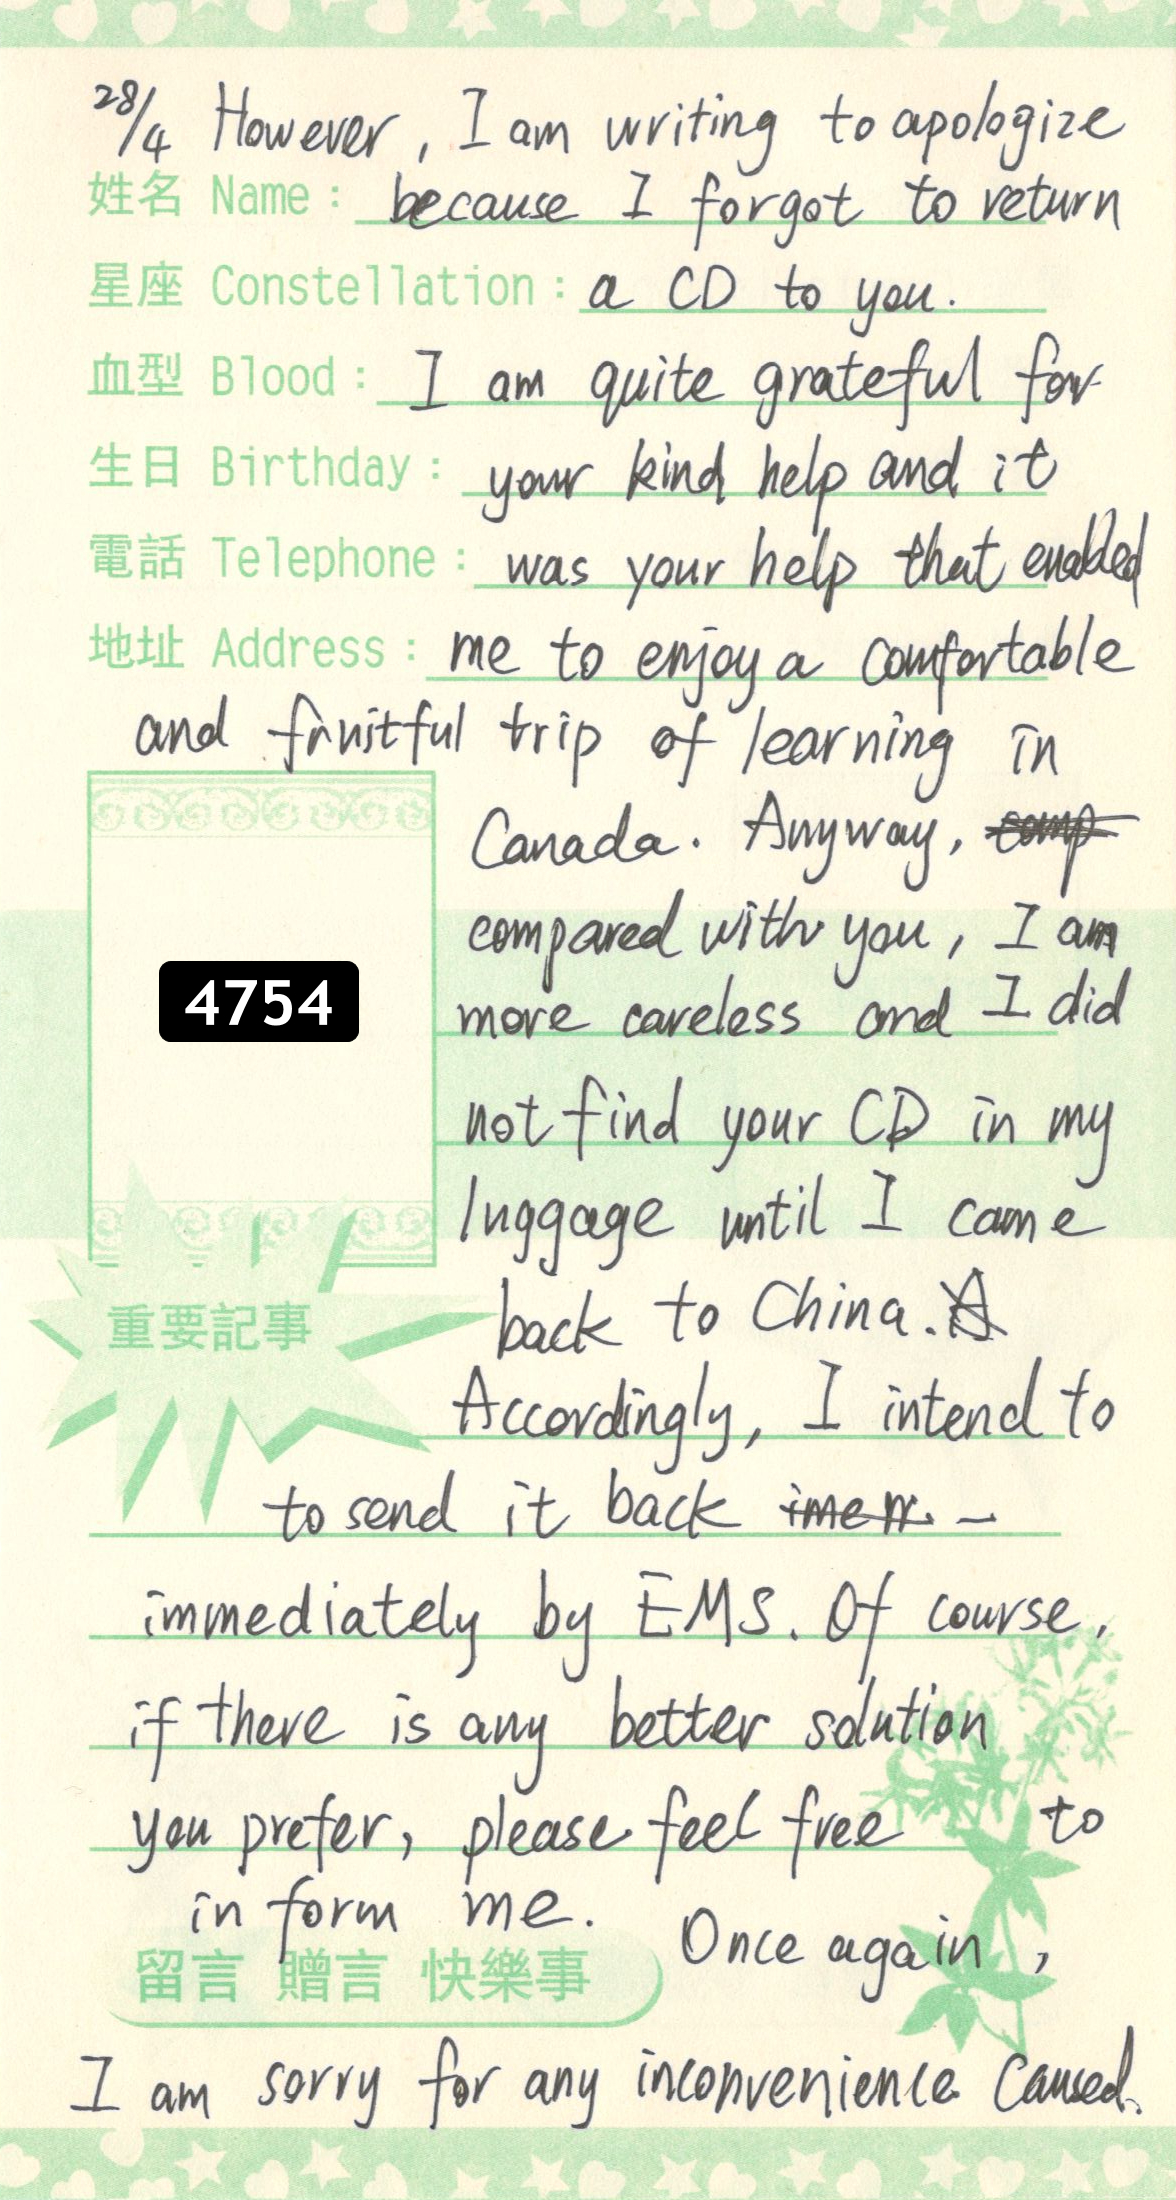 28/4 However, I am writing to apologize
姓名 Name: because I forgot to return
星座 Constellation: a CD to you.
血型 Blood: I am quite grateful for
生日 Birthday: your kind help and it
電話 Telephone: was your help that enabled
地址 Address: me to enjoy a comfortable
and fruitful trip of learning in
Canada. Anyway, comp
compared with you, I am
4754
more careless and I did
not find your CD in my
luggage until I came
back to China. A
重要記事
Accordingly, I intend to
to send it back
immediately by EMS. Of course,
if there is any better solution
you prefer, please feel free to
inform me. Once again,
留言 贈言 快樂事
I am sorry for any inconvenience caused.